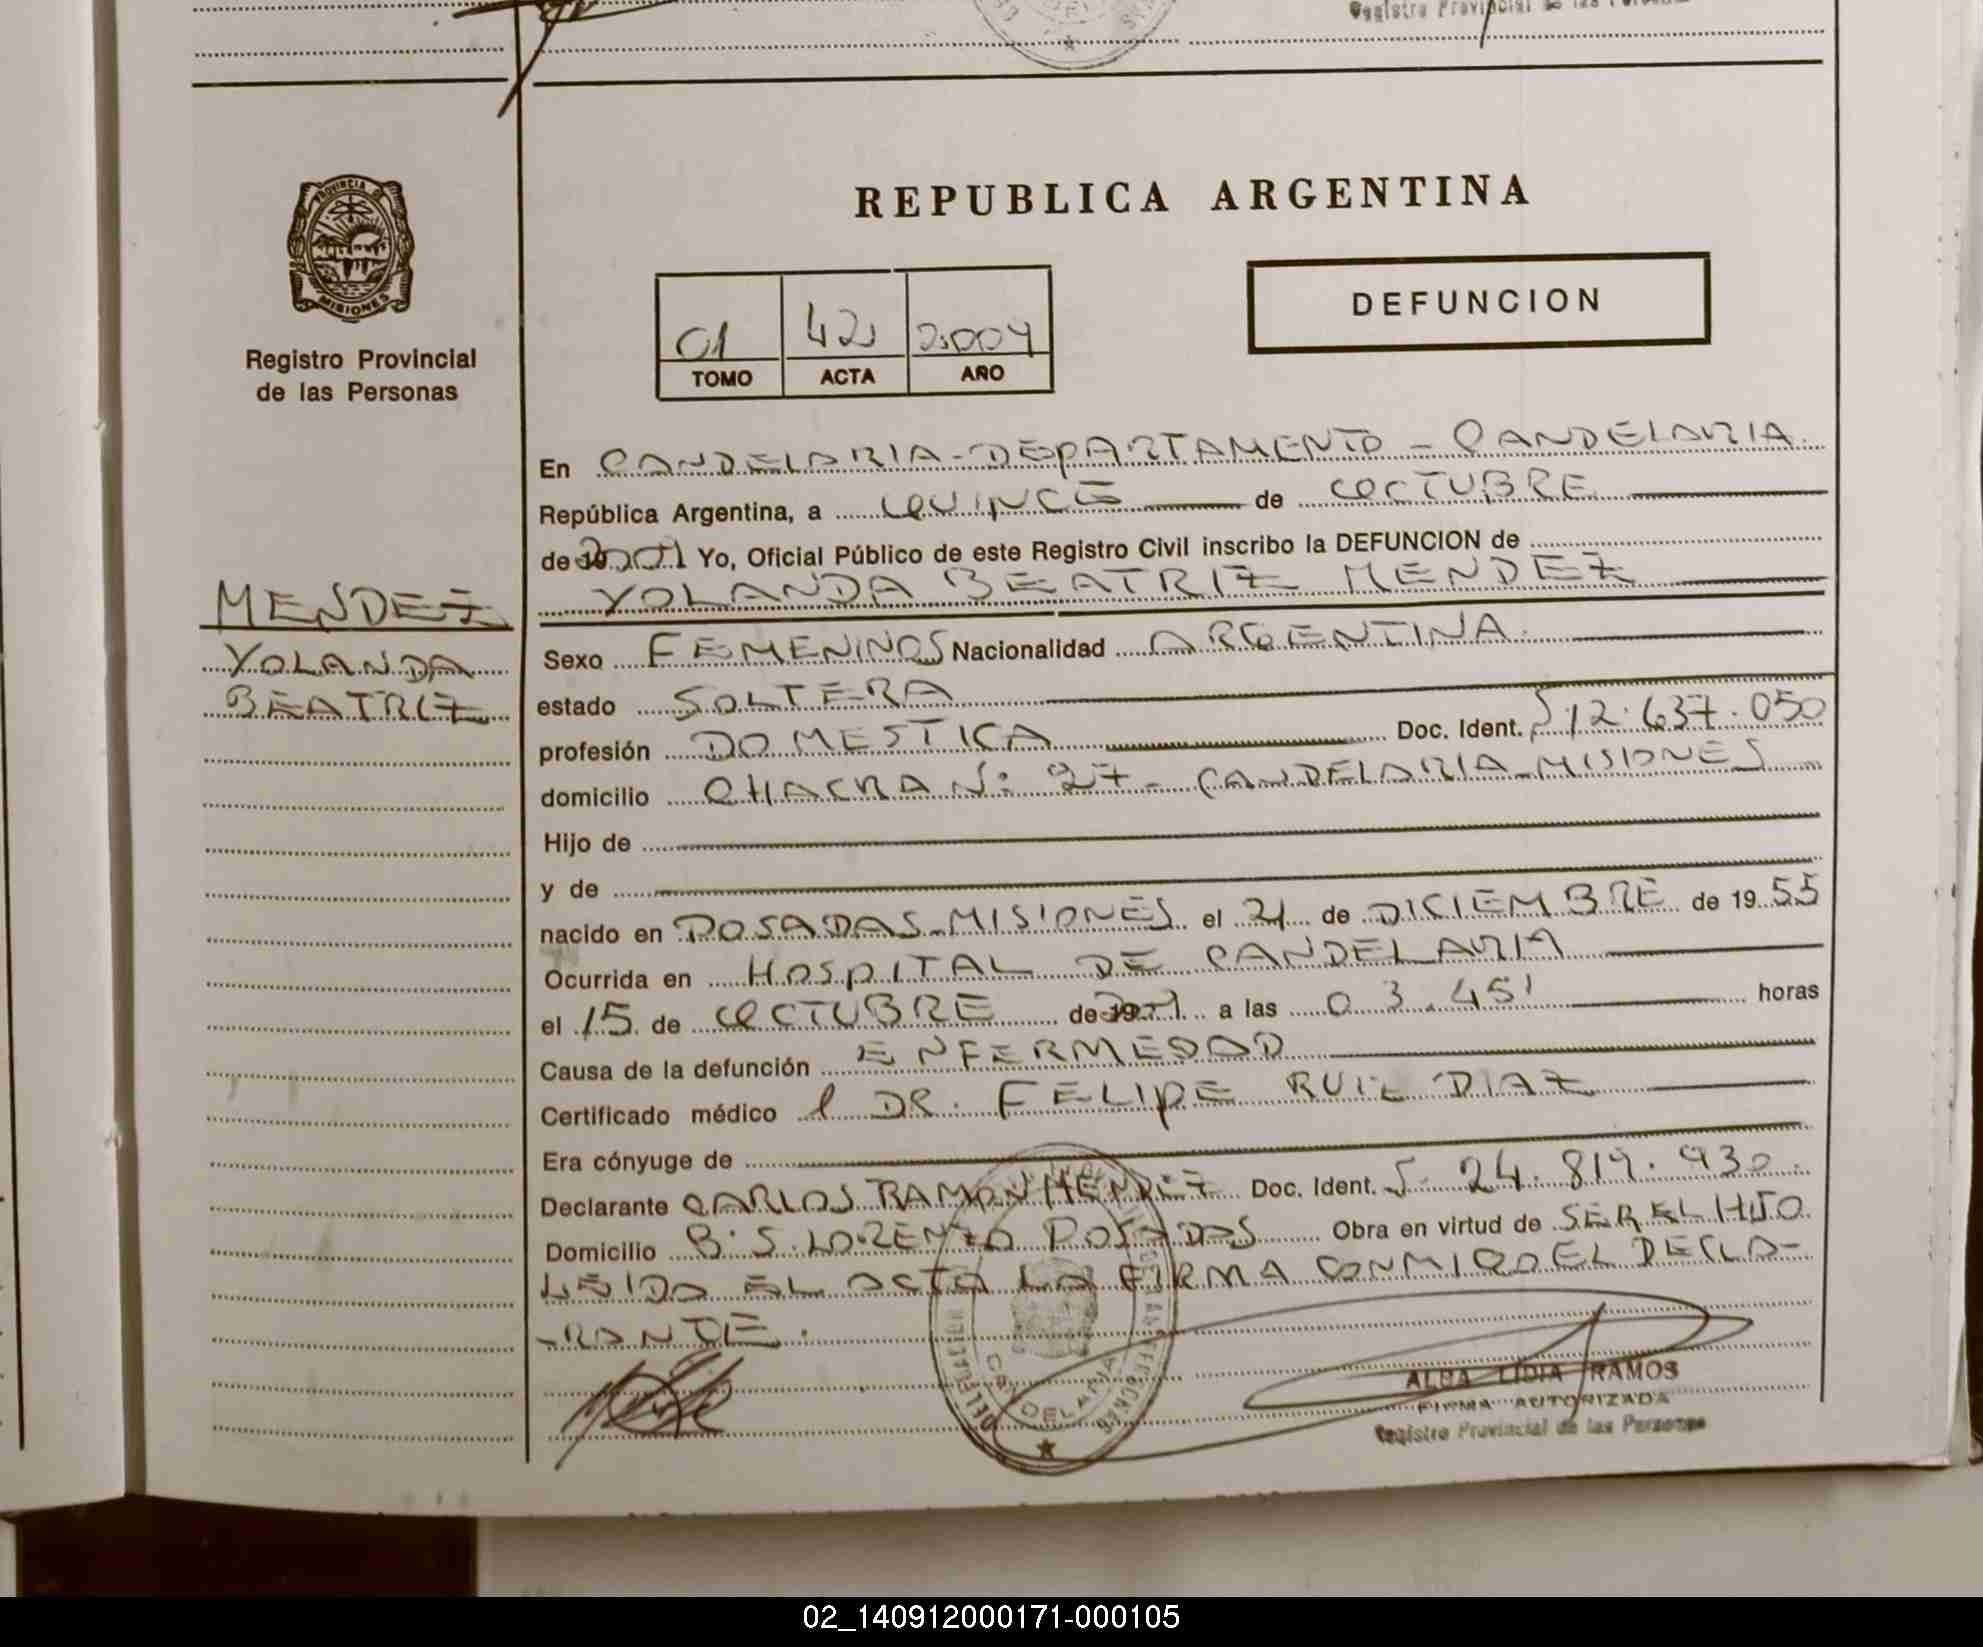 Registro Provincial de las Personas
PROVINCIA DE
MISIONES
Registro Provincial
de las Personas
REPUBLICA ARGENTINA
01 42 2.004
TOMO ACTA AÑO
DEFUNCION
En CANDELARIA-DEPARTAMENTO - CANDELARIA
República Argentina, a QUINCE de OCTUBRE
de 2004 Yo, Oficial Público de este Registro Civil inscribo la DEFUNCION de
YOLANDA BEATRIZ MENDEZ
MENDEZ
YOLANDA
BEATRIZ
Sexo FEMENINOS Nacionalidad ARGENTINA
estado SOLTERA
profesión DOMESTICA Doc. Ident. 12.637.050
domicilio CHACRA N: 27- CANDELARIA-MISIONES
Hijo de
y de
nacido en POSADAS-MISIONES el 21 de DICIEMBRE de 1955
Ocurrida en HOSPITAL DE CANDELARIA
el 15 de OCTUBRE de a las 03.45' horas
Causa de la defunción ENFERMEDAD
Certificado médico DR. FELIPE RUIZ DIAZ
Era cónyuge de
Declarante CARLOS RAMON MENDEZ Doc. Ident. 24.819.930
Domicilio B: S. LORENZO POSADAS Obra en virtud de SER EL HIJO
LEIDA EL ACTA LA FIRMA CONMIGO EL DECLA-
-RANTE.
CANDELARIA
ALBA LIDIA RAMOS
FIRMA AUTORIZADA
Registro Provincial de las Personas
02_140912000171-000105